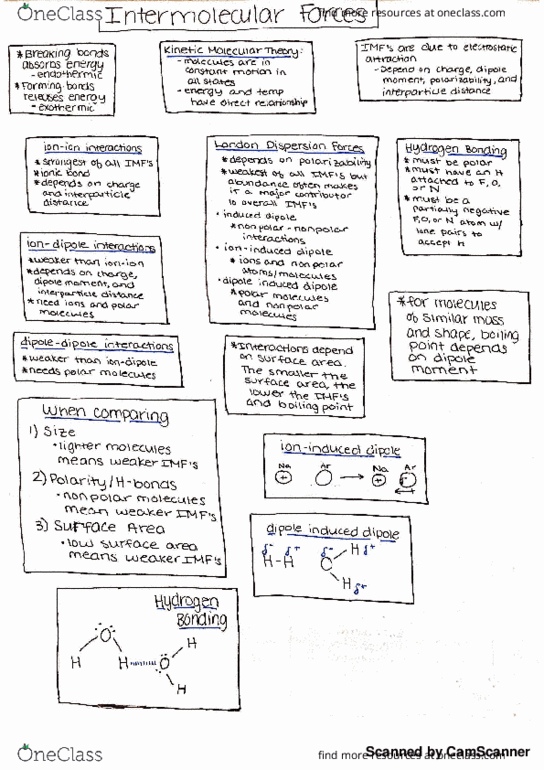 OneClass
Intermolecular Forces
find more resources at oneclass.com
*Breaking bonds
absorbs energy
-endothermic
*Forming bonds
releases energy
-exothermic
Kinetic Molecular Theory:
-molecules are in
constant motion in
all states
-energy and temp
have direct relationship
IMF's are due to electrostatic
attraction
-Depend on charge, dipole
moment, polarizability, and
interparticle distance
ion-ion interactions
*strongest of all IMF's
*ionic bond
*depends on charge
and interparticle
distance
London Dispersion Forces
*depends on polarizability
*weakest of all IMF's but
abundance often makes
it a major contributor
to overall IMF's
• induced dipole
*nonpolar-nonpolar
interactions
• ion-induced dipole
*ions and nonpolar
atoms/molecules
• dipole induced dipole
*polar molecules
and nonpolar
molecules
Hydrogen Bonding
*must be polar
*must have an H
attached to F, O,
or N
*must be a
partially negative
F, O, or N atom w/
lone pairs to
accept H
ion-dipole interactions
*weaker than ion-ion
*depends on charge,
dipole moment, and
interparticle distance
*need ions and polar
molecules
*for molecules
of similar mass
and shape, boiling
point depends
on dipole
moment
dipole-dipole interactions
*weaker than ion-dipole
*needs polar molecules
*Interactions depend
on surface area.
The smaller the
surface area, the
lower the IMF's
and boiling point
When comparing
1) Size
• lighter molecules
means weaker IMF's
2) Polarity/H-bonds
• nonpolar molecules
mean weaker IMF's
3) Surface Area
• low surface area
means weaker IMF's
ion-induced dipole
Na Ar Na Ar
+ +
dipole induced dipole
δ- δ+ δ- H δ+
H-H C
H δ+
Hydrogen
Bonding
O H
H H O
H
OneClass
find more resources at oneclass.com
Scanned by CamScanner